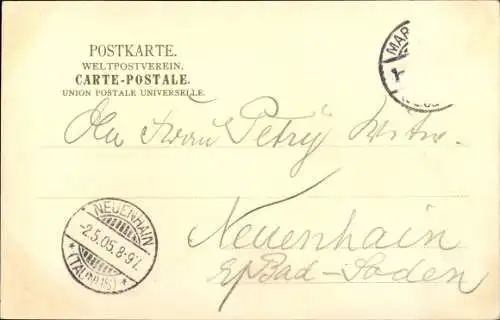 POSTKARTE.
WELTPOSTVEREIN.
CARTE-POSTALE.
UNION POSTALE UNIVERSELLE.
MAR
An Frau Petry Witwe.
NEUENHAIN
-2.5.05.8-9V.
*(TAUNUS)*
Neuenhain
b/Bad-Soden